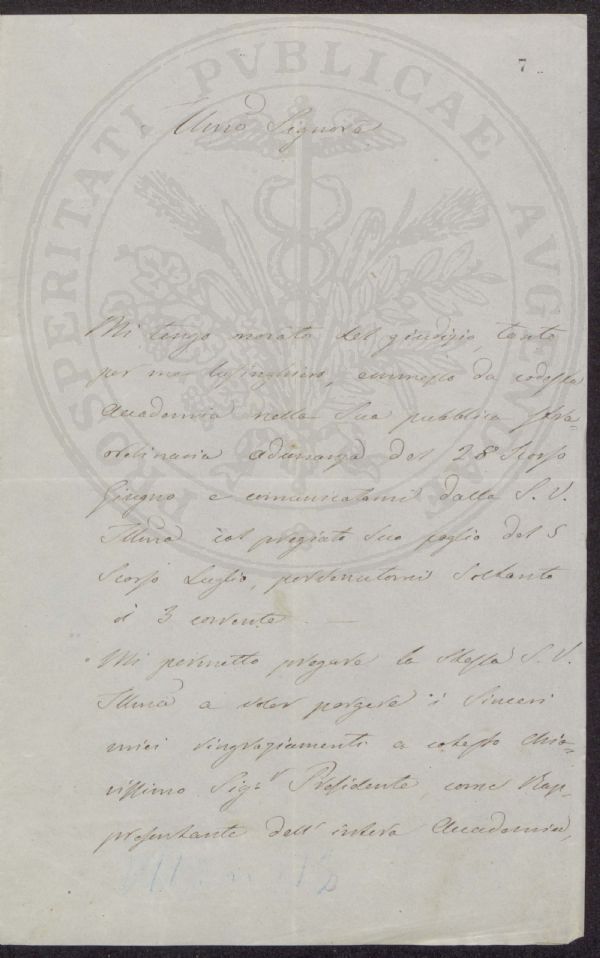 7
PROSPERITATI PVBLICAE AVGENDAE
Illmo Signore
Mi tengo onorato del giudizio, tanto
per me lusinghiero, emmesso da codesta
Accademia nella Sua pubblica stra=
ordinaria adunanza del 28 Scorso
Giugno e comunicatomi dalla S. V.
Illma col pregiato suo foglio del 5
Scorso Luglio, pervenutomi Soltanto
il 3 corrente. —
Mi permetto pregare la stessa S. V.
Illma a voler porgere i Sinceri
miei ringraziamenti a cotesto Chia=
rissimo Sigr Presidente, come Rap=
presentante dell' intera Accademia,